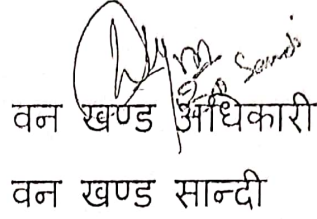 वन खण्ड अधिकारी
वन खण्ड सान्दी